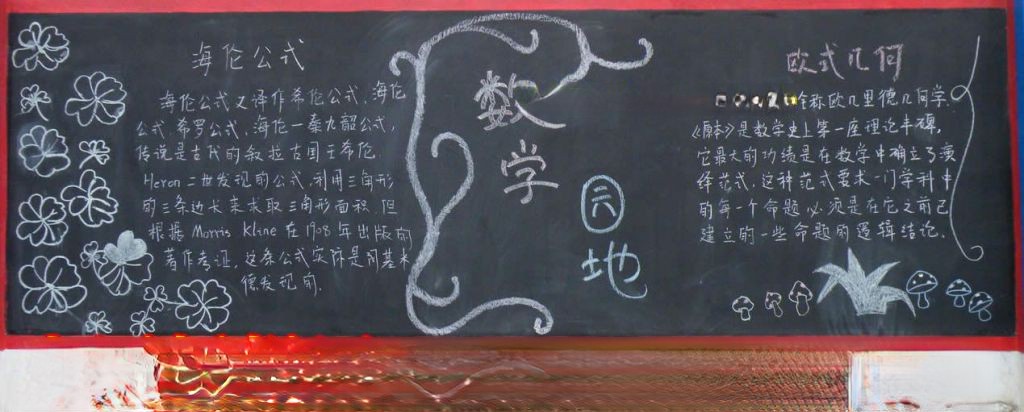 海伦公式
海伦公式又译作希伦公式,海伦
公式,希罗公式,海伦一秦九韶公式,
传说是古代的叙拉古国王希伦,
Heron二世发现的公式,利用三角形
的三条边长来求取三角形面积.但
根据Morris Kline在1908年出版的
著作考证,这条公式实际是阿基米
德发现的.
数
学
园
地
欧式几何
全称欧几里德几何学.
《原本》是数学史上第一座理论丰碑,
它最大的功绩是在数学中确立了演
绎范式.这种范式要求一门学科中
的每一个命题必须是在它之前已
建立的一些命题的逻辑结论.